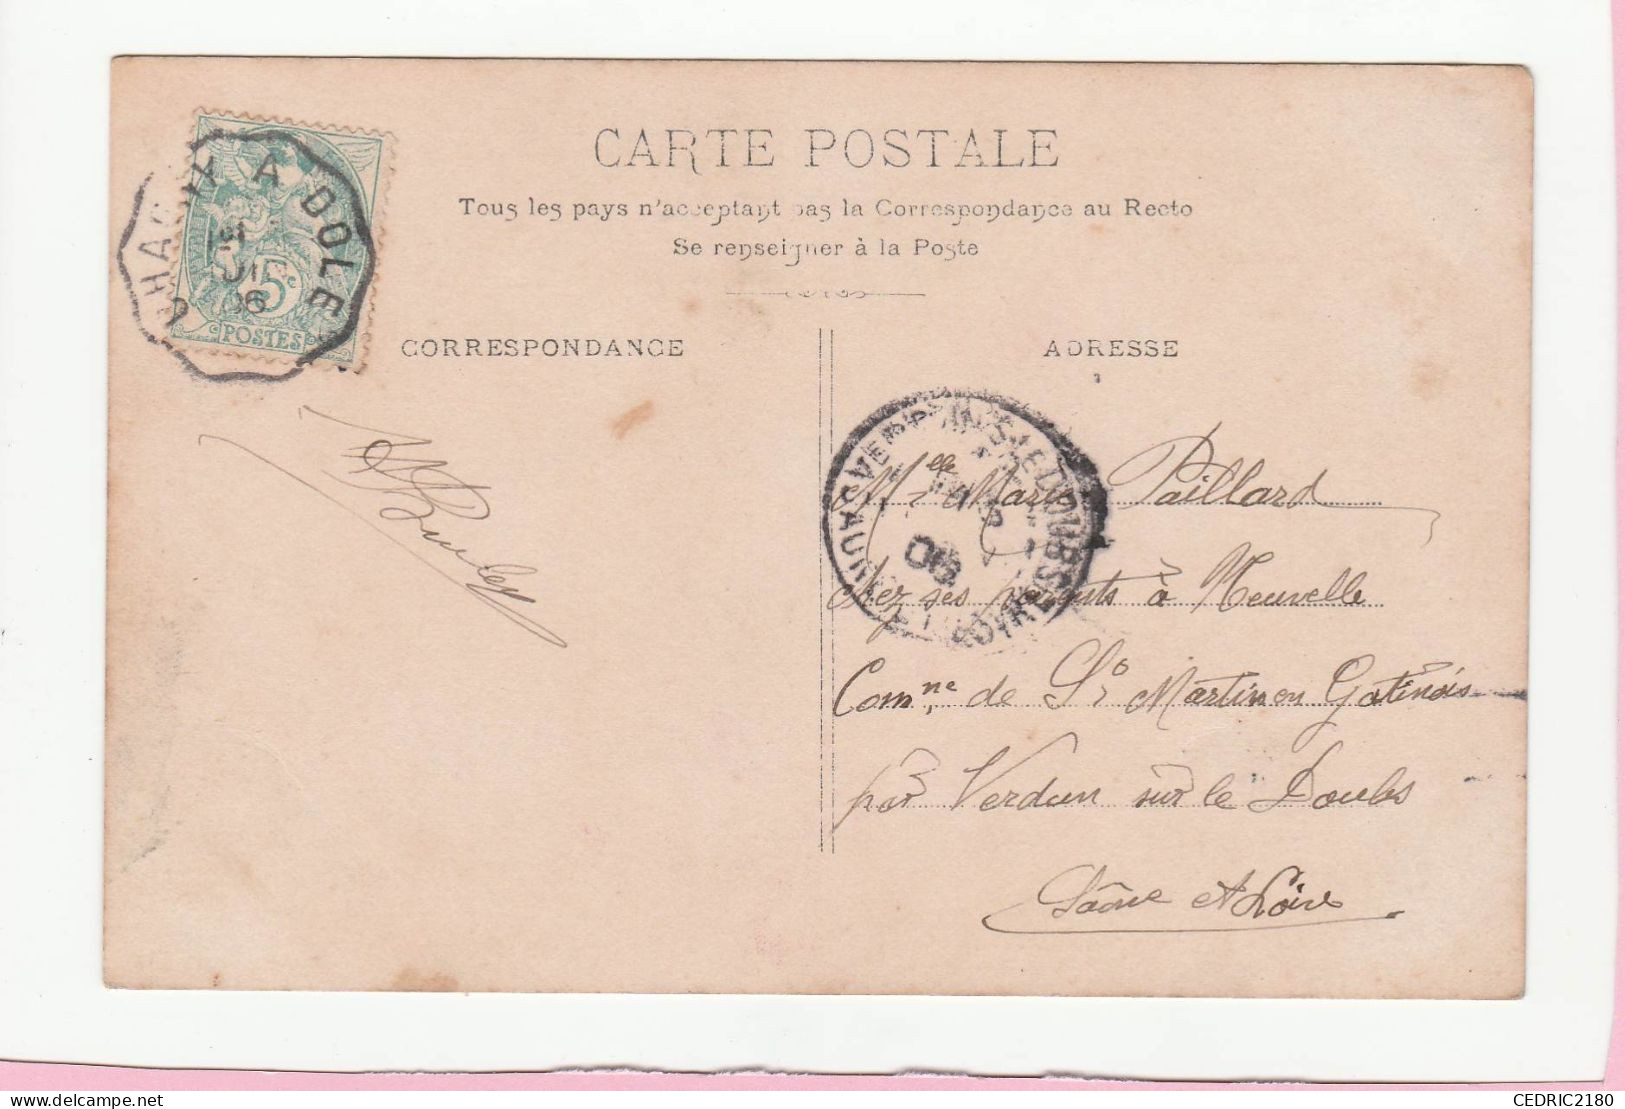 CARTE POSTALE
Tous les pays n'acceptant pas la Correspondance au Recto
Se renseigner à la Poste
CORRESPONDANCE
ADRESSE
A DOLE
06
5c
POSTES
06
Melle Marie Paillard
chez ses parents à Neuvelle
Comne de St Martin en Gatinois
par Verdun sur le Doubs
Saône et Loire
CEDRIC2180